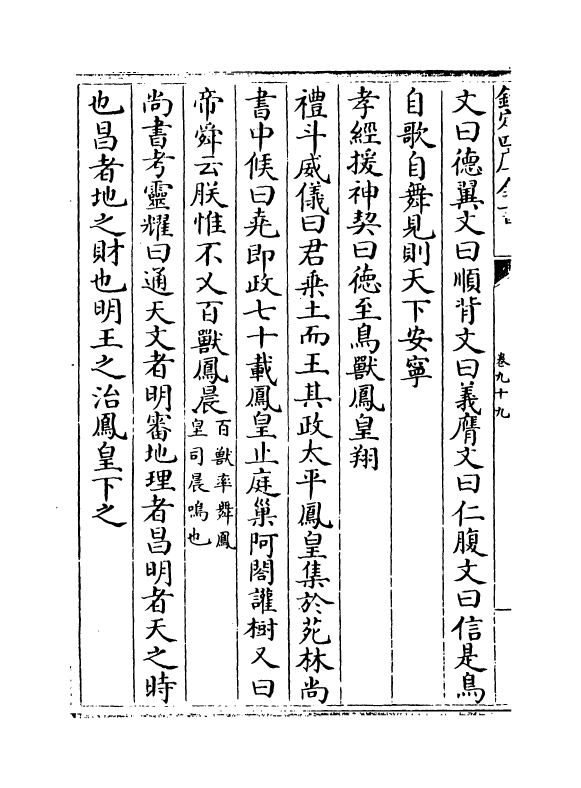 欽定四庫全書
卷九十九
文曰德翼文曰順背文曰義膺文曰仁腹文曰信是鳥
自歌自舞見則天下安寧
孝經援神契曰德至鳥獸鳳皇翔
禮斗威儀曰君乗土而王其政太平鳳皇集於苑林尚
書中候曰堯即政七十載鳳皇止庭巢阿閣讙樹又曰
帝舜云朕惟不乂百獸鳳晨百獸率舞鳳皇司晨鳴也
尚書考靈耀曰通天文者明審地理者昌明者天之時
也昌者地之財也明王之治鳳皇下之